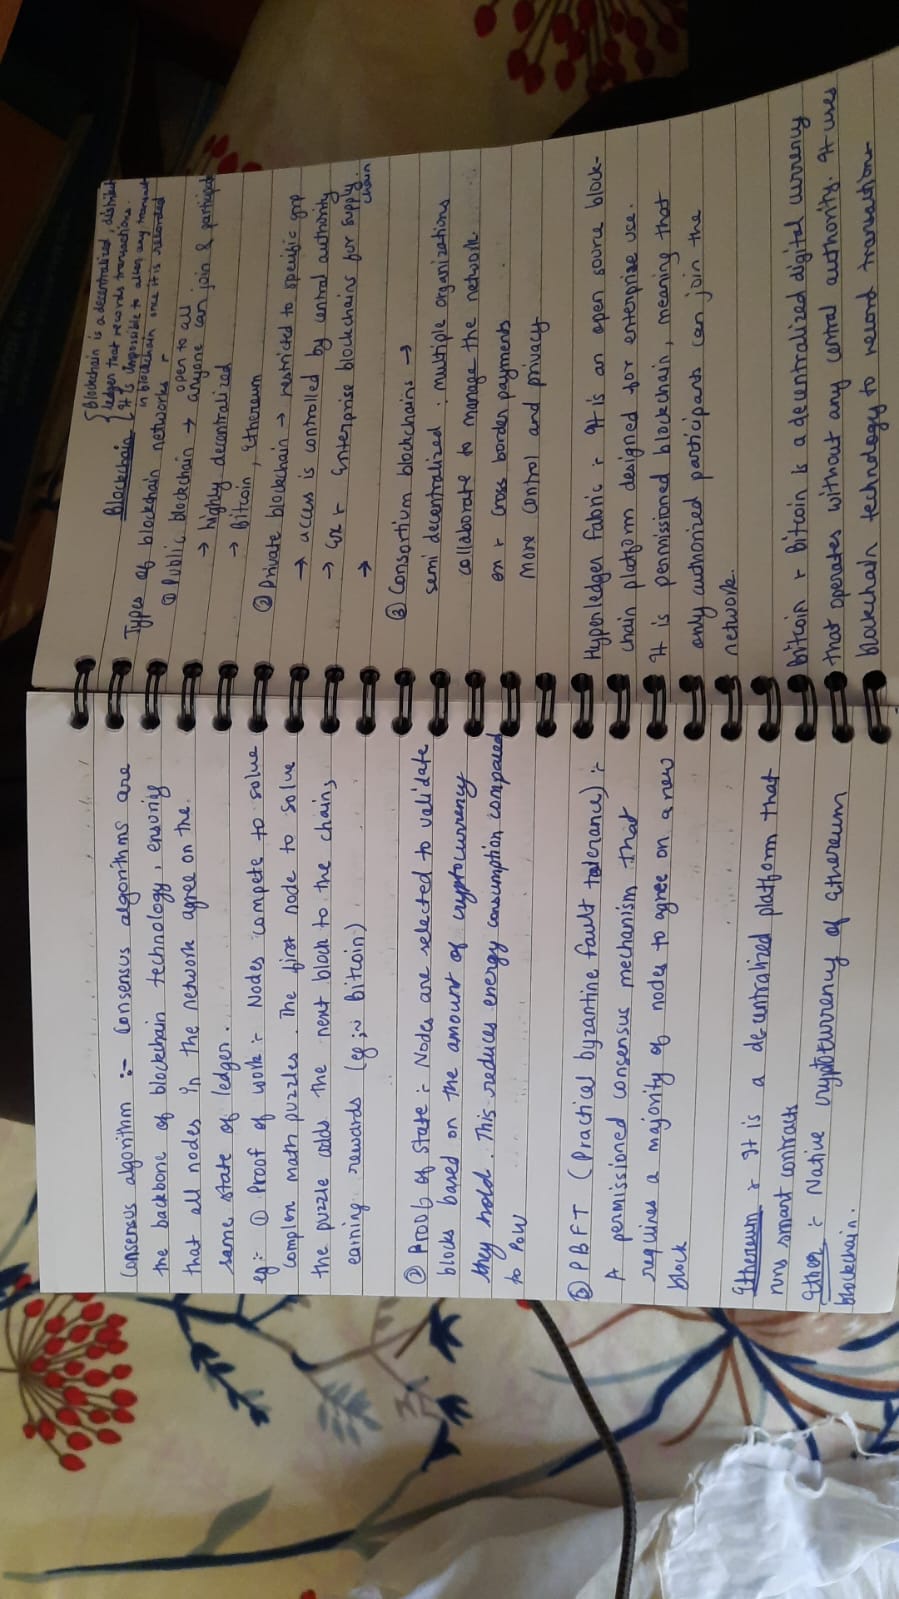 Consensus algorithm :- Consensus algorithms are
the backbone of blockchain technology, ensuring
that all nodes in the network agree on the
same state of ledger.
eg :- ① Proof of work :- Nodes compete to solve
complex math puzzles. The first node to solve
the puzzle adds the next block to the chain,
earning rewards (eg :- Bitcoin)
② Proof of state :- Nodes are selected to validate
blocks based on the amount of cryptocurrency
they hold. This reduces energy consumption compared
to POW
③ PBFT (Practical byzantine fault tolerance) :-
A permissioned consensus mechanism that
requires a majority of nodes to agree on a new
block
Ethereum :- It is a decentralized platform that
runs smart contracts
Ether :- Native cryptocurrency of Ethereum
blockchain.
Blockchain { Blockchain is a decentralized, distribut
ledger that records transactions.
It is impossible to alter any transact
in blockchain once it is recorded
Types of blockchain networks :-
open to all
① Public blockchain → anyone can join & participate
→ highly decentralized
→ Bitcoin, Ethereum
② Private blockchain → restricted to specific grp
→ access is controlled by central authority
→ Ex :- Enterprise blockchains for supply
chain
→
③ Consortium blockchains →
semi decentralized : multiple organizations
collaborate to manage the network
ex :- cross border payments
more control and privacy
Hyperledger fabric :- It is an open source block-
chain platform designed for enterprise use.
It is permissioned blockchain, meaning that
only authorized participants can join the
network.
Bitcoin :- Bitcoin is a decentralized digital currency
that operates without any central authority. It uses
blockchain technology to record transactions